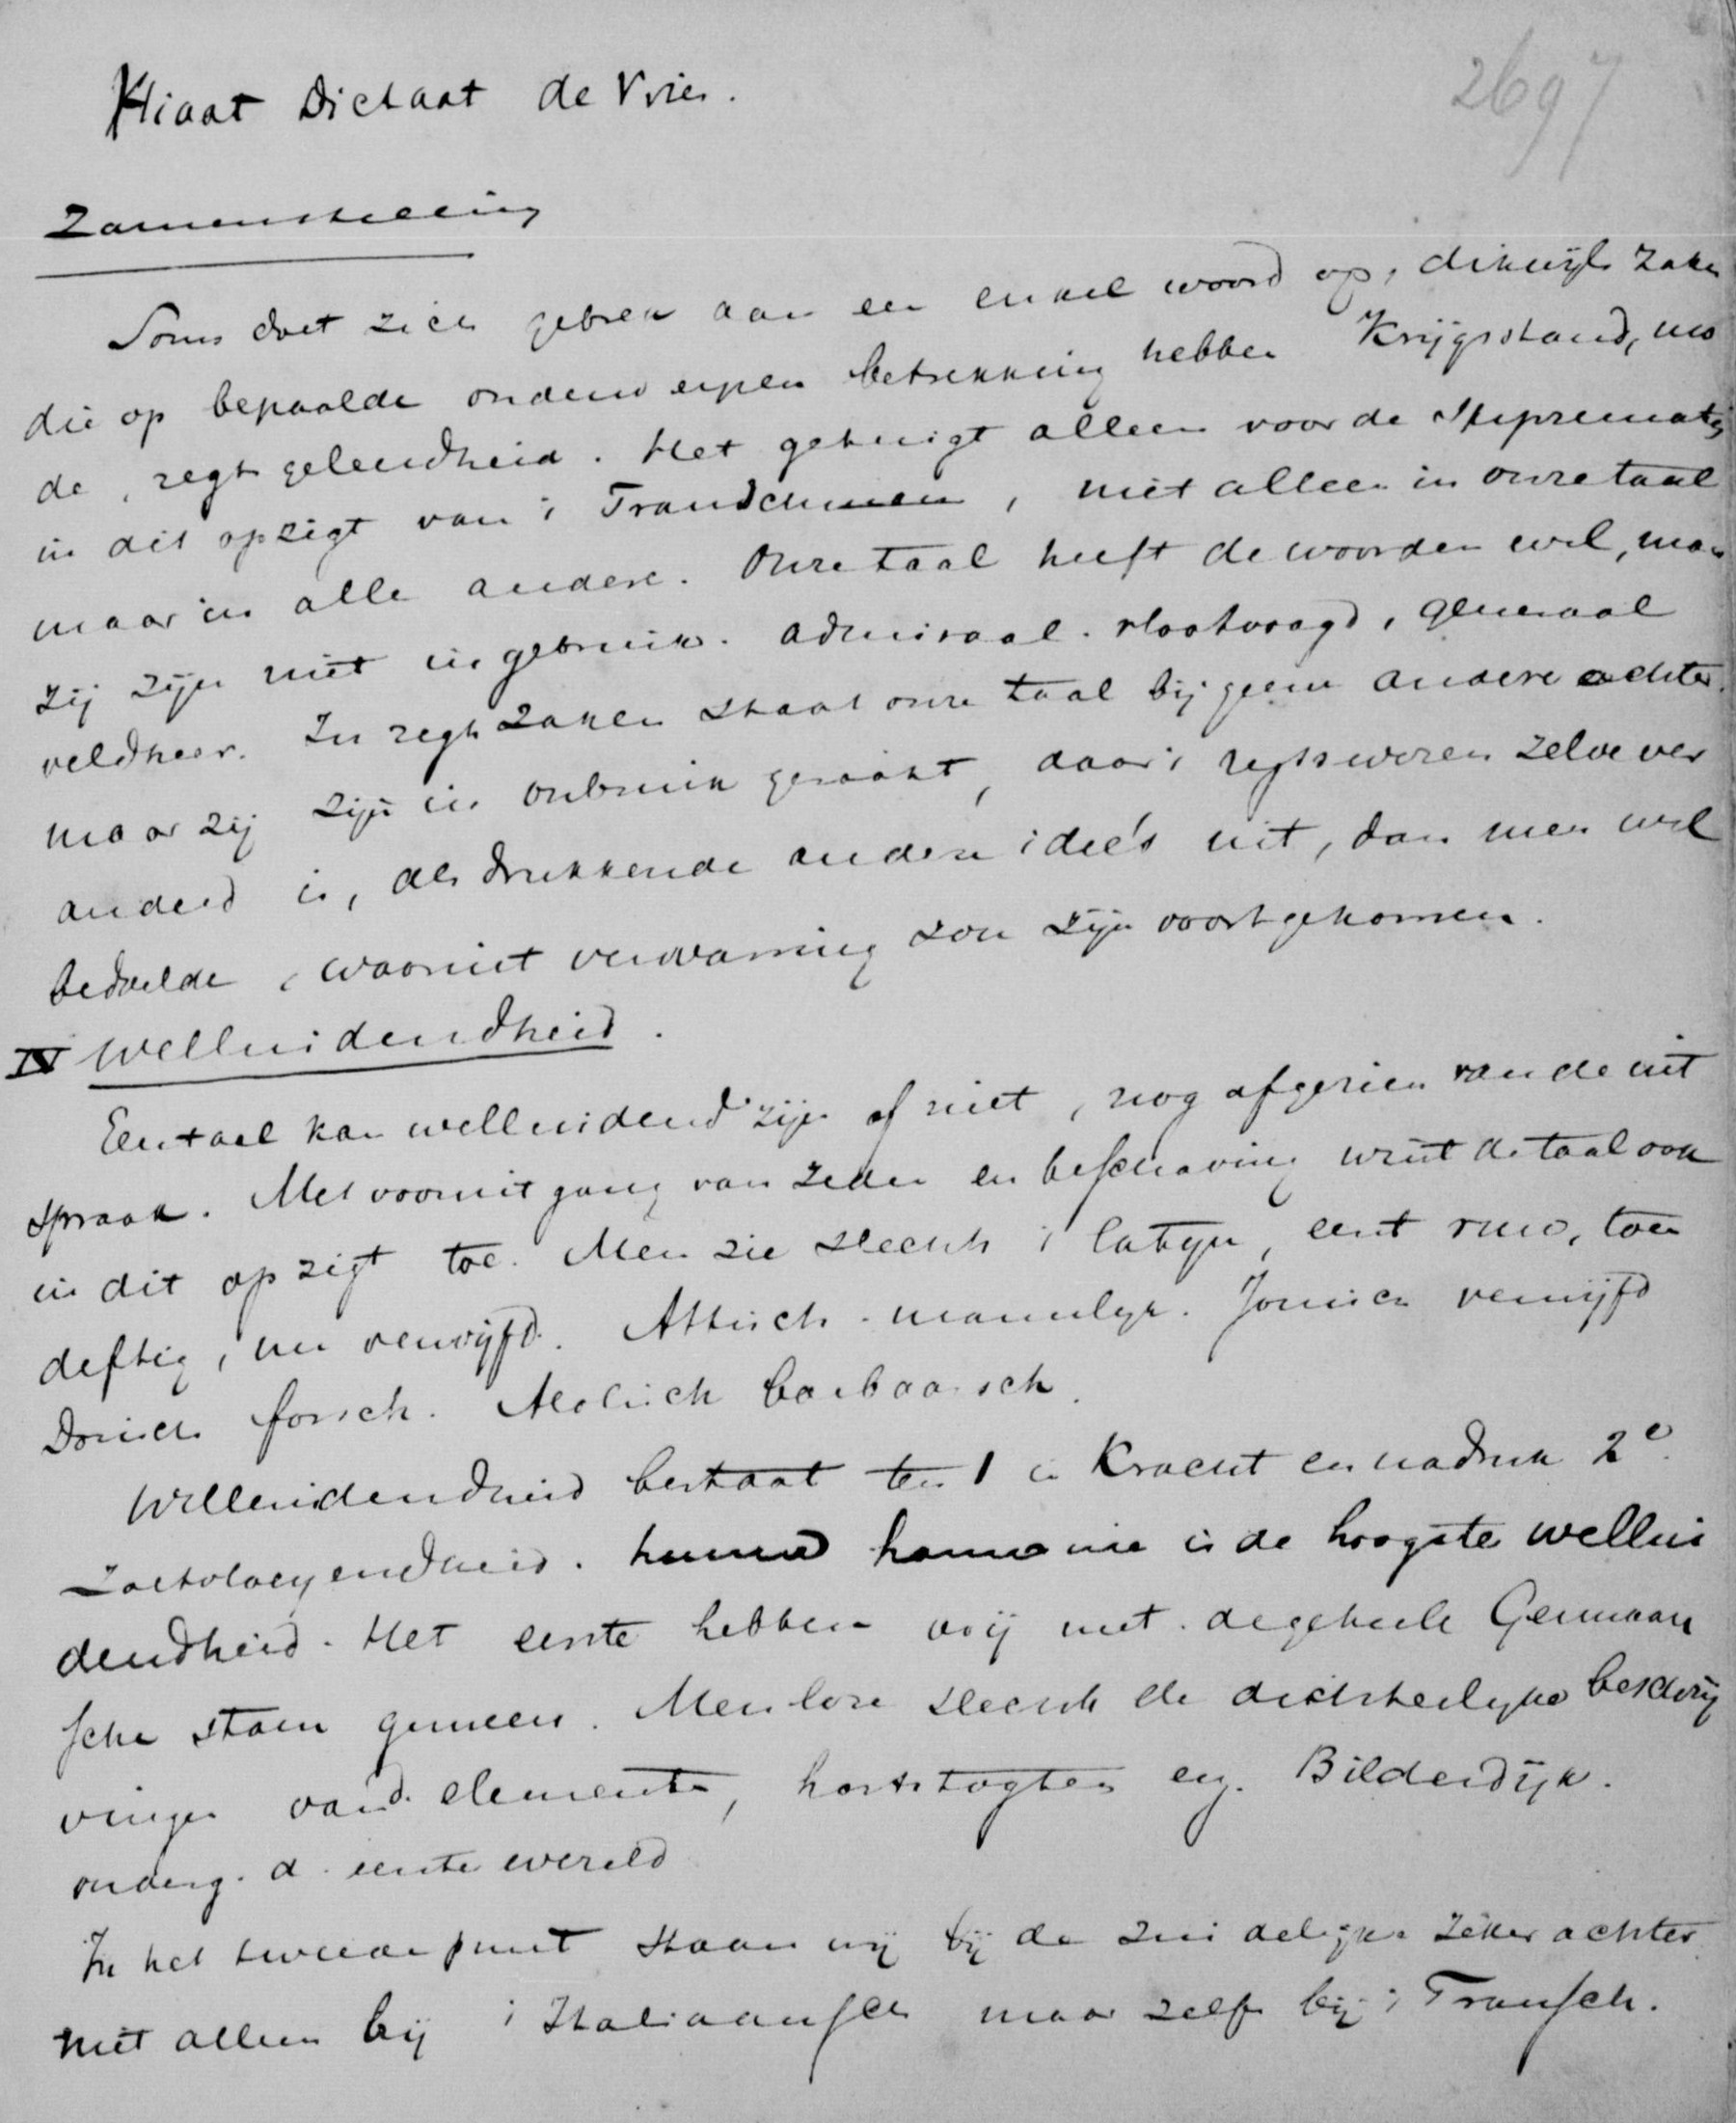 Hiaat Dictaat de Vries.
2697
Zamenstelling
Soms doet zich gebrek aan een enkel woord op, dikwijls zaken
die op bepaalde onderwerpen betrekking hebben Krijgsstand, mo
de, regtsgeleerdheid. Het getuigt alleen voor de Supprematy
in dit opzigt van 't Franschmen, niet alleen in onze taal
maar in alle andere. Onze taal heeft de woorden wel, maar
zij zijn niet in gebruik. admiraal. vlootvoogd, generaal
veldheer. In regtszaken staat onze taal bij geene andere achter.
maar zij zijn in onbruik geraakt, daar 't regtswezen zelve ver
anderd is, als drukkende andere ideé's uit, dan men wel
bedoelde, waaruit verwarring zou zijn voortgekomen.
IV Welluidendheid.
Een taal kan welluidend zijn of niet, nog afgezien van de uit
spraak. Met vooruitgang van zeden en beschaving wint de taal ook
in dit opzigt toe. Men zie slechts 't latijn, eerst ruw, toen
deftig, nu verwijfd. Attisch. mannelijk. Jonisch verwijfd
Dorisch forsch. Aeolisch barbaarsch.
Welluidendheid bestaat ten 1 in Kracht en nadruk 2e.
zachtvloeyendheid. harmonie is de hoogste wellui
dendheid. Het eerste hebben wij met de geheele Germaan
sche stam gemeen. Men leze slechts de dichterlijke beschrij
vingen van d. elementen, hartstogten enz. Bilderdijk.
onderg. d. eerste wereld
In het tweede punt staan wij bij de zuidelijke zeker achter
niet alleen bij 't Italiaansch maar zelfs bij 't Fransch.